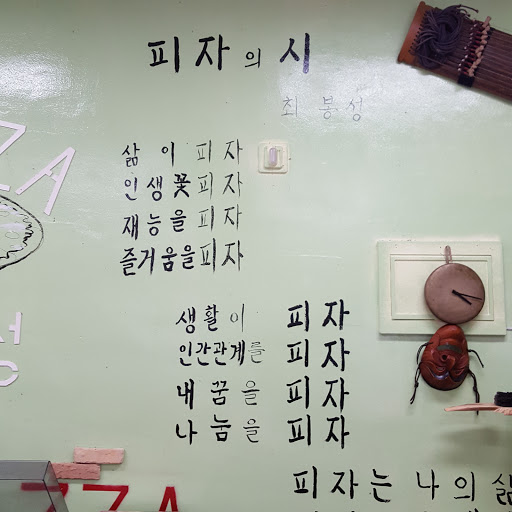 피자의 시
최봉성
ZZA
삶이 피자
인생꽃 피자
재능을 피자
즐거움을 피자
성
생활이 피자
인간관계를 피자
내 꿈을 피자
나눔을 피자
피자는 나의 삶
ZZA